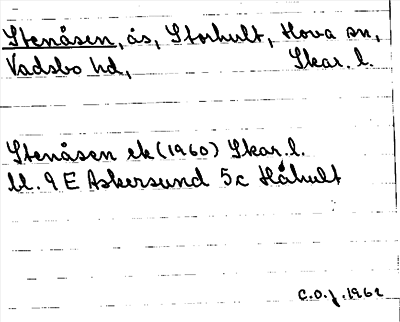 Stenåsen, ås, Storhult, Hova sn,
Vadsbo hd, Skar. l.
Stenåsen ek (1960) Skar. l.
Bl. 9 E Askersund 5c Håhult
C.O.J. 1962